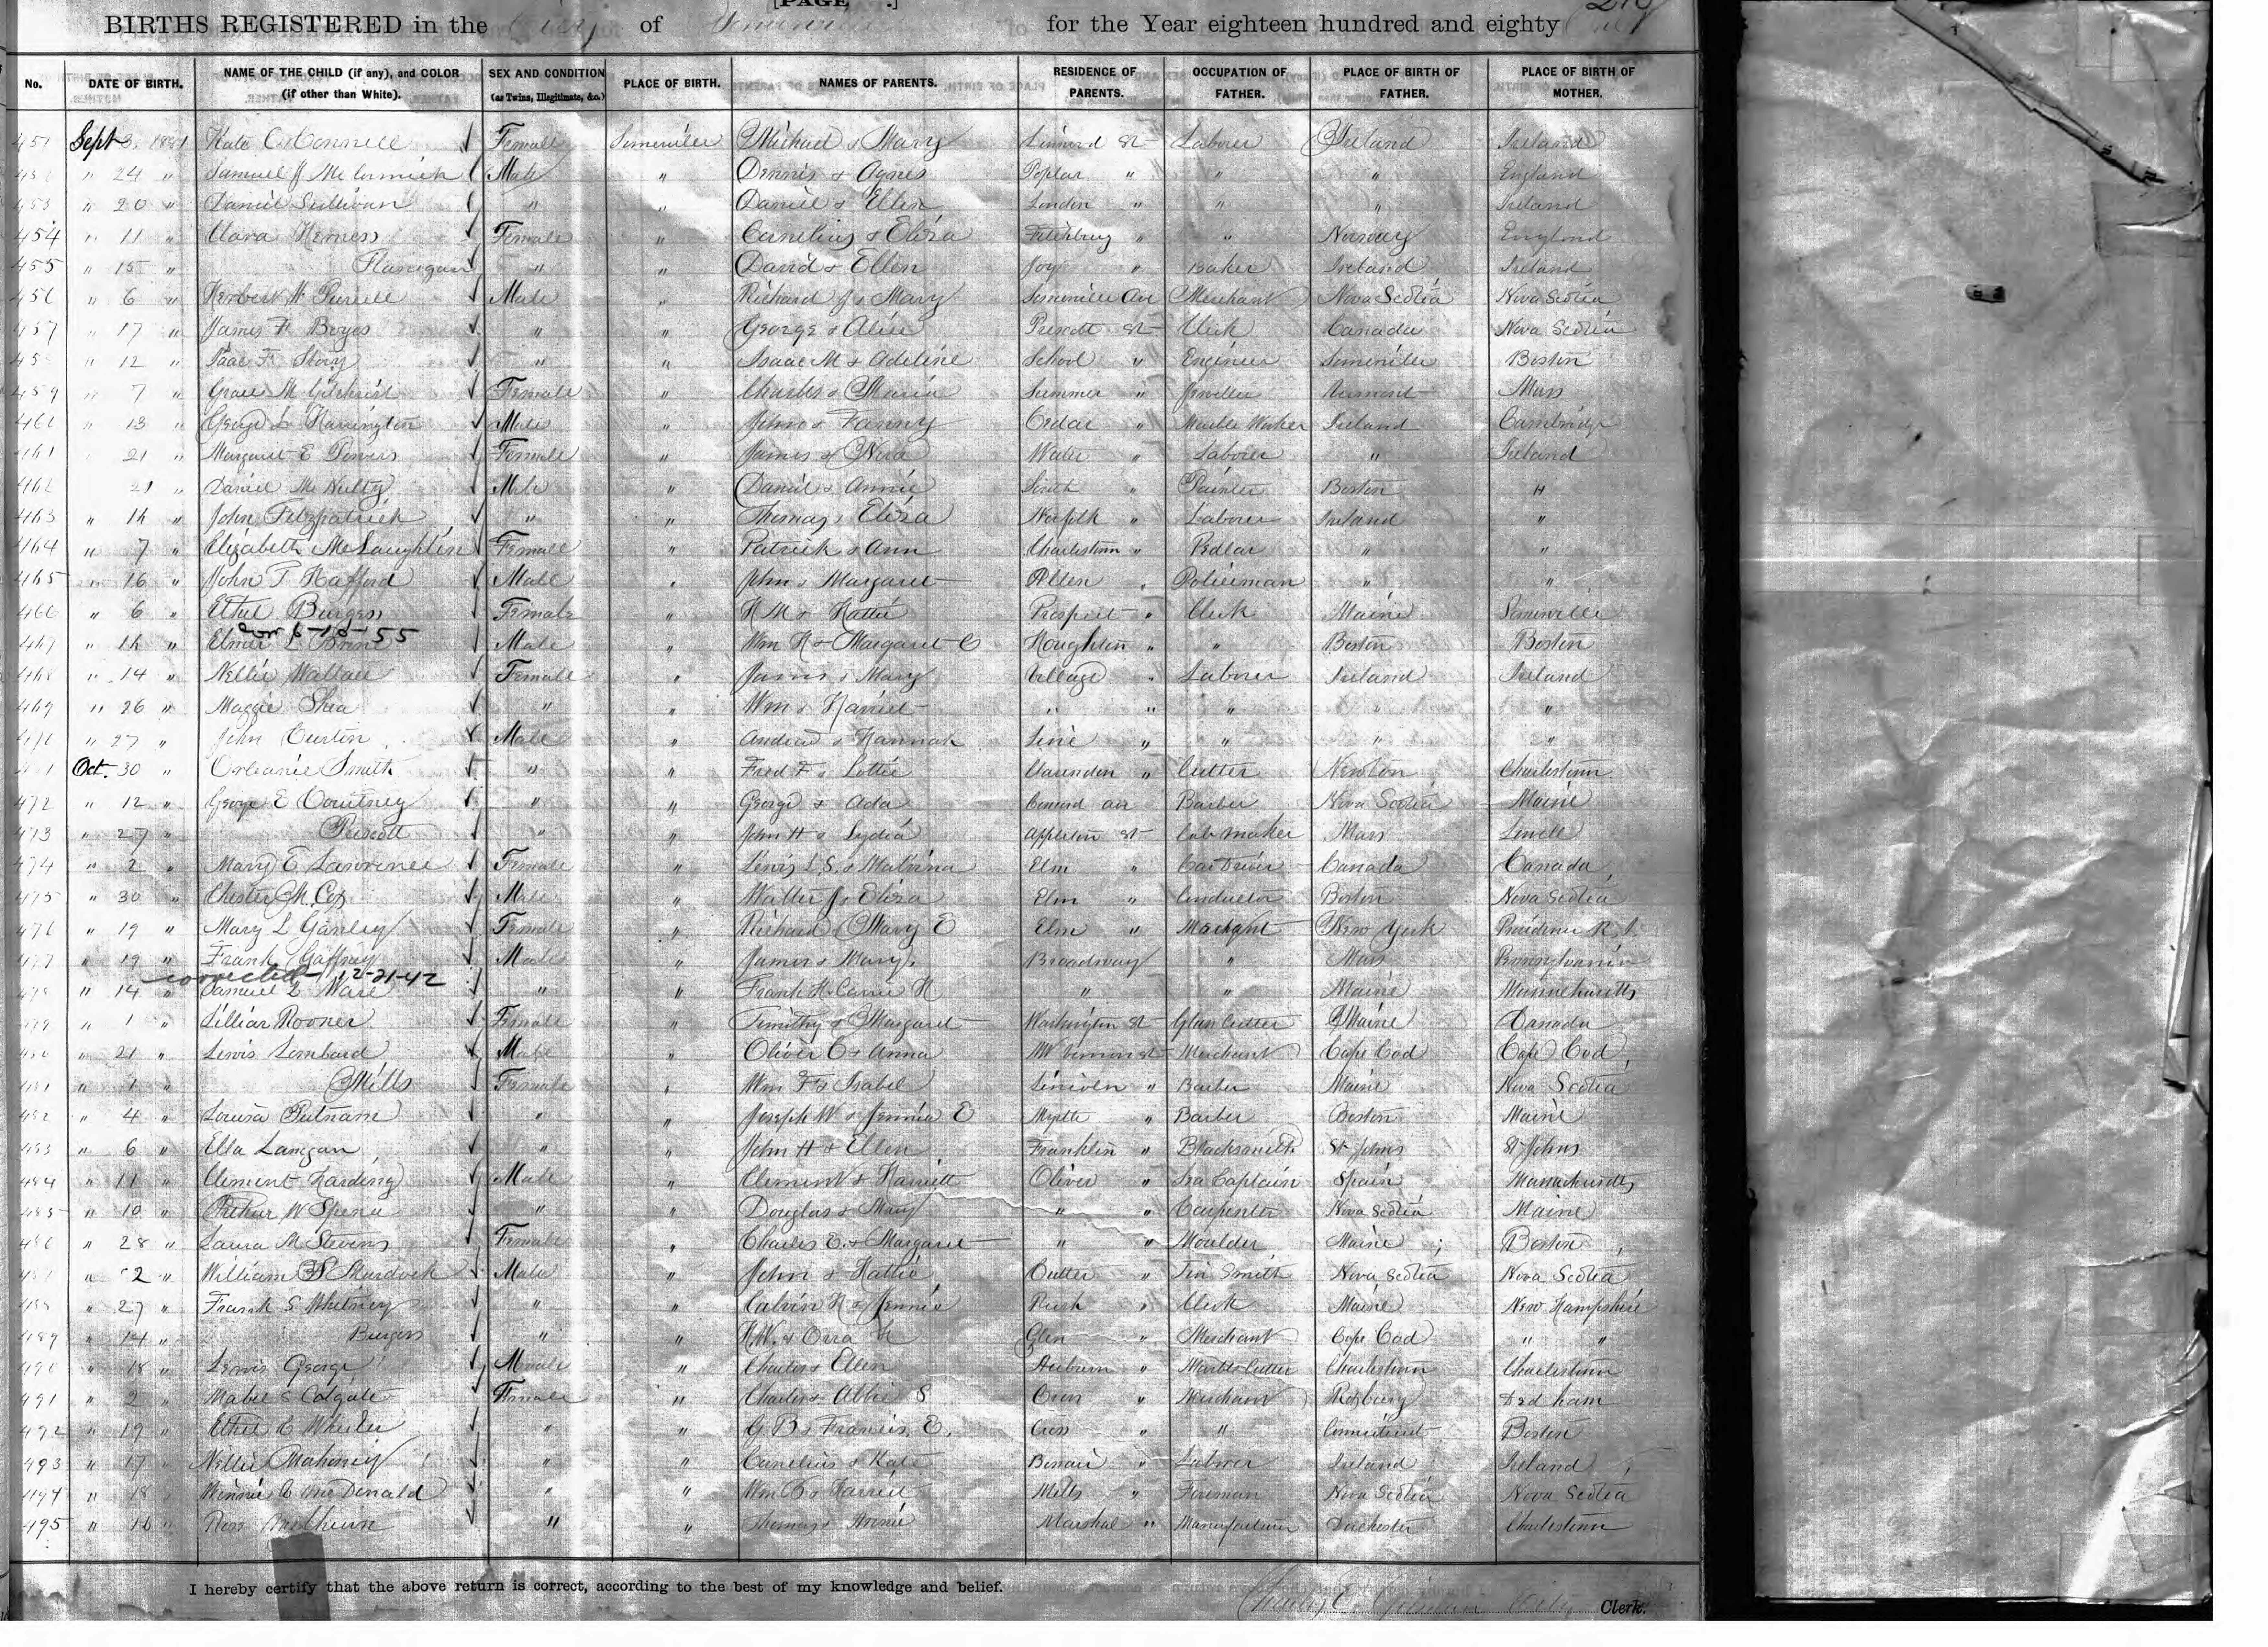 [PAGE .]
BIRTHS REGISTERED in the City of Somerville for the Year eighteen hundred and eighty One
No. DATE OF BIRTH. NAME OF THE CHILD (if any), and COLOR (if other than White). SEX AND CONDITION (as Twins, Illegitimate, &c.) PLACE OF BIRTH. NAMES OF PARENTS. RESIDENCE OF PARENTS. OCCUPATION OF FATHER. PLACE OF BIRTH OF FATHER. PLACE OF BIRTH OF MOTHER.
451 Sept 3 1881 Kate O'Connell Female Somerville Michael & Mary Linwood St Laborer Ireland Ireland
24 " Samuel J McCormick Male " Dennis & Agnes Poplar " " " England
453 " 20 " Daniel Sullivan " " Daniel & Ellen Linden " " " Ireland
454 " 11 " Clara Female " Cornelius & Eliza Fitchburg " " Norway England
455 " 15 " Flanigan " " David & Ellen Joy " Baker Ireland Ireland
456 " 6 " Herbert H Male " Richard J & Mary Somerville Av Merchant Nova Scotia Nova Scotia
457 " 17 " James F Boyes " " George & Alice Prescott St Clerk Canada Nova Scotia
45 " 12 " Isaac F Story " " Isaac M & Adeline School " Engineer Somerville Boston
459 " 7 " Grace M Gilchrist Female " Charles & Maria Summer " Jeweller Vermont Mass
460 " 13 " George L Harrington Male " John & Fanny Cedar " Marble Worker Ireland Cambridge
461 " 21 " Margaret E Powers Female " James & Nora Water " Laborer " Ireland
462 21 " Daniel McNulty Male " Daniel & Annie South " Painter Boston "
463 " " John Fitzpatrick " " Thomas & Eliza Norfolk " Laborer Ireland "
464 " 7 " Elizabeth McLaughlin Female " Patrick & Ann Charlestown " Pedlar " "
465 " 16 " John T Hafford Male " John & Margaret Allen " Policeman " "
466 " 6 " Ethel Burgess Female " H M & Hattie Prospect " Clerk Maine Somerville
467 " " Elmer L 6-10-55 Male " Wm H & Margaret C Houghton " " Boston Boston
468 " 14 " Nellie Wallace Female " James & Mary Village " Laborer Ireland Ireland
469 " 26 " Maggie Shea " " Wm & Harriet " " " " "
" 27 " John Curtin Male " Andrew & Hannah Line " " " "
Oct. 30 " Smith " " Fred F & Lottie Clarendon " Cutter Newton Charlestown
472 " 12 " George E Courtney " " George & Ada Concord av Barber Nova Scotia Maine
473 " 27 " Prescott " " John H & Lydia Appleton St Cab maker Mass Lowell
474 " 2 " Mary E Lawrence Female " Lewis L. S. & Malvina Elm " Car Driver Canada Canada
475 " 30 " Chester M. Cox Male " Walter J & Eliza Elm " Conductor Boston Nova Scotia
476 " 19 " Mary L Ganley Female " Richard & Mary E Elm " New York Providence R. I.
477 " 19 " Frank Gaffney Male " James & Mary Broadway " Mass Pennsylvania
corrected 12-21-42
478 " 14 " Samuel L Ware " " Frank H. Carrie H " " Maine Massachusetts
479 " 1 " Lillian Rooner Female " Timothy & Margaret Washington St Glass Cutter Maine Canada
480 " 21 " Lewis Lombard Male " Oliver C & Anna Mt Vernon St Merchant Cape Cod Cape Cod
481 " 1 " Mills Female " Wm F & Isabel Lincoln " Barber Maine Nova Scotia
482 " 4 " Louisa Putnam " " Joseph W & Jennie E Myrtle " Barber Boston Maine
483 " 6 " Ella Langan " " John H & Ellen Franklin " Blacksmith St Johns St Johns
484 " 11 " Clement Harding Male " Clement & Harriett Oliver " Sea Captain Spain Massachusetts
485 " 10 " Arthur W " " Douglas & Mary " " Carpenter Nova Scotia Maine
486 " 28 " Laura M Stevens Female " Charles E. & Margaret " " Moulder Maine Boston
487 " 2 " William Murdock Male " John & Hattie Cutter " Tin Smith Nova Scotia Nova Scotia
488 " 27 " Frank S Whitney " " Calvin H & Jennie Rush " Clerk Maine New Hampshire
489 " 14 " Burgess " " H. W. & Orra Glen " Merchant Cape Cod " "
490 " 18 " Lewis George Male " Charles & Ellen Auburn " Marble Cutter Charlestown Charlestown
491 " 2 " Mabel S Colgate Female " Charles & Abbie S Cross " Merchant Roxbury Dedham
492 " 19 " Ethel C Wheeler " " G. B & Francis E. Cross " " Connecticut Boston
493 " 17 " Nellie Mahoney " " Cornelius & Kate Bonair " Laborer Ireland Ireland
494 " 18 " Minnie C McDonald " " Wm C & Harriet Mills " Fireman Nova Scotia Nova Scotia
495 " 16 " " " Thomas & Annie Marshal " Manufacturer Dorchester Charlestown
I hereby certify that the above return is correct, according to the best of my knowledge and belief.
Charles E. Gilman City Clerk.